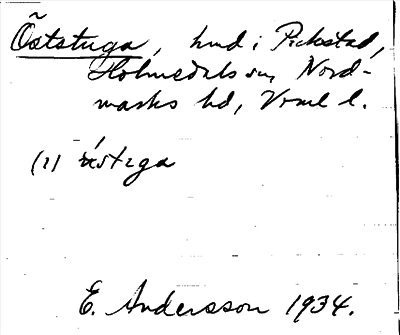 Öststuga, hmd i Pickstad,
Holmedals sn, Nord-
marks hd, Vrml l.
(1)
E. Andersson 1934.